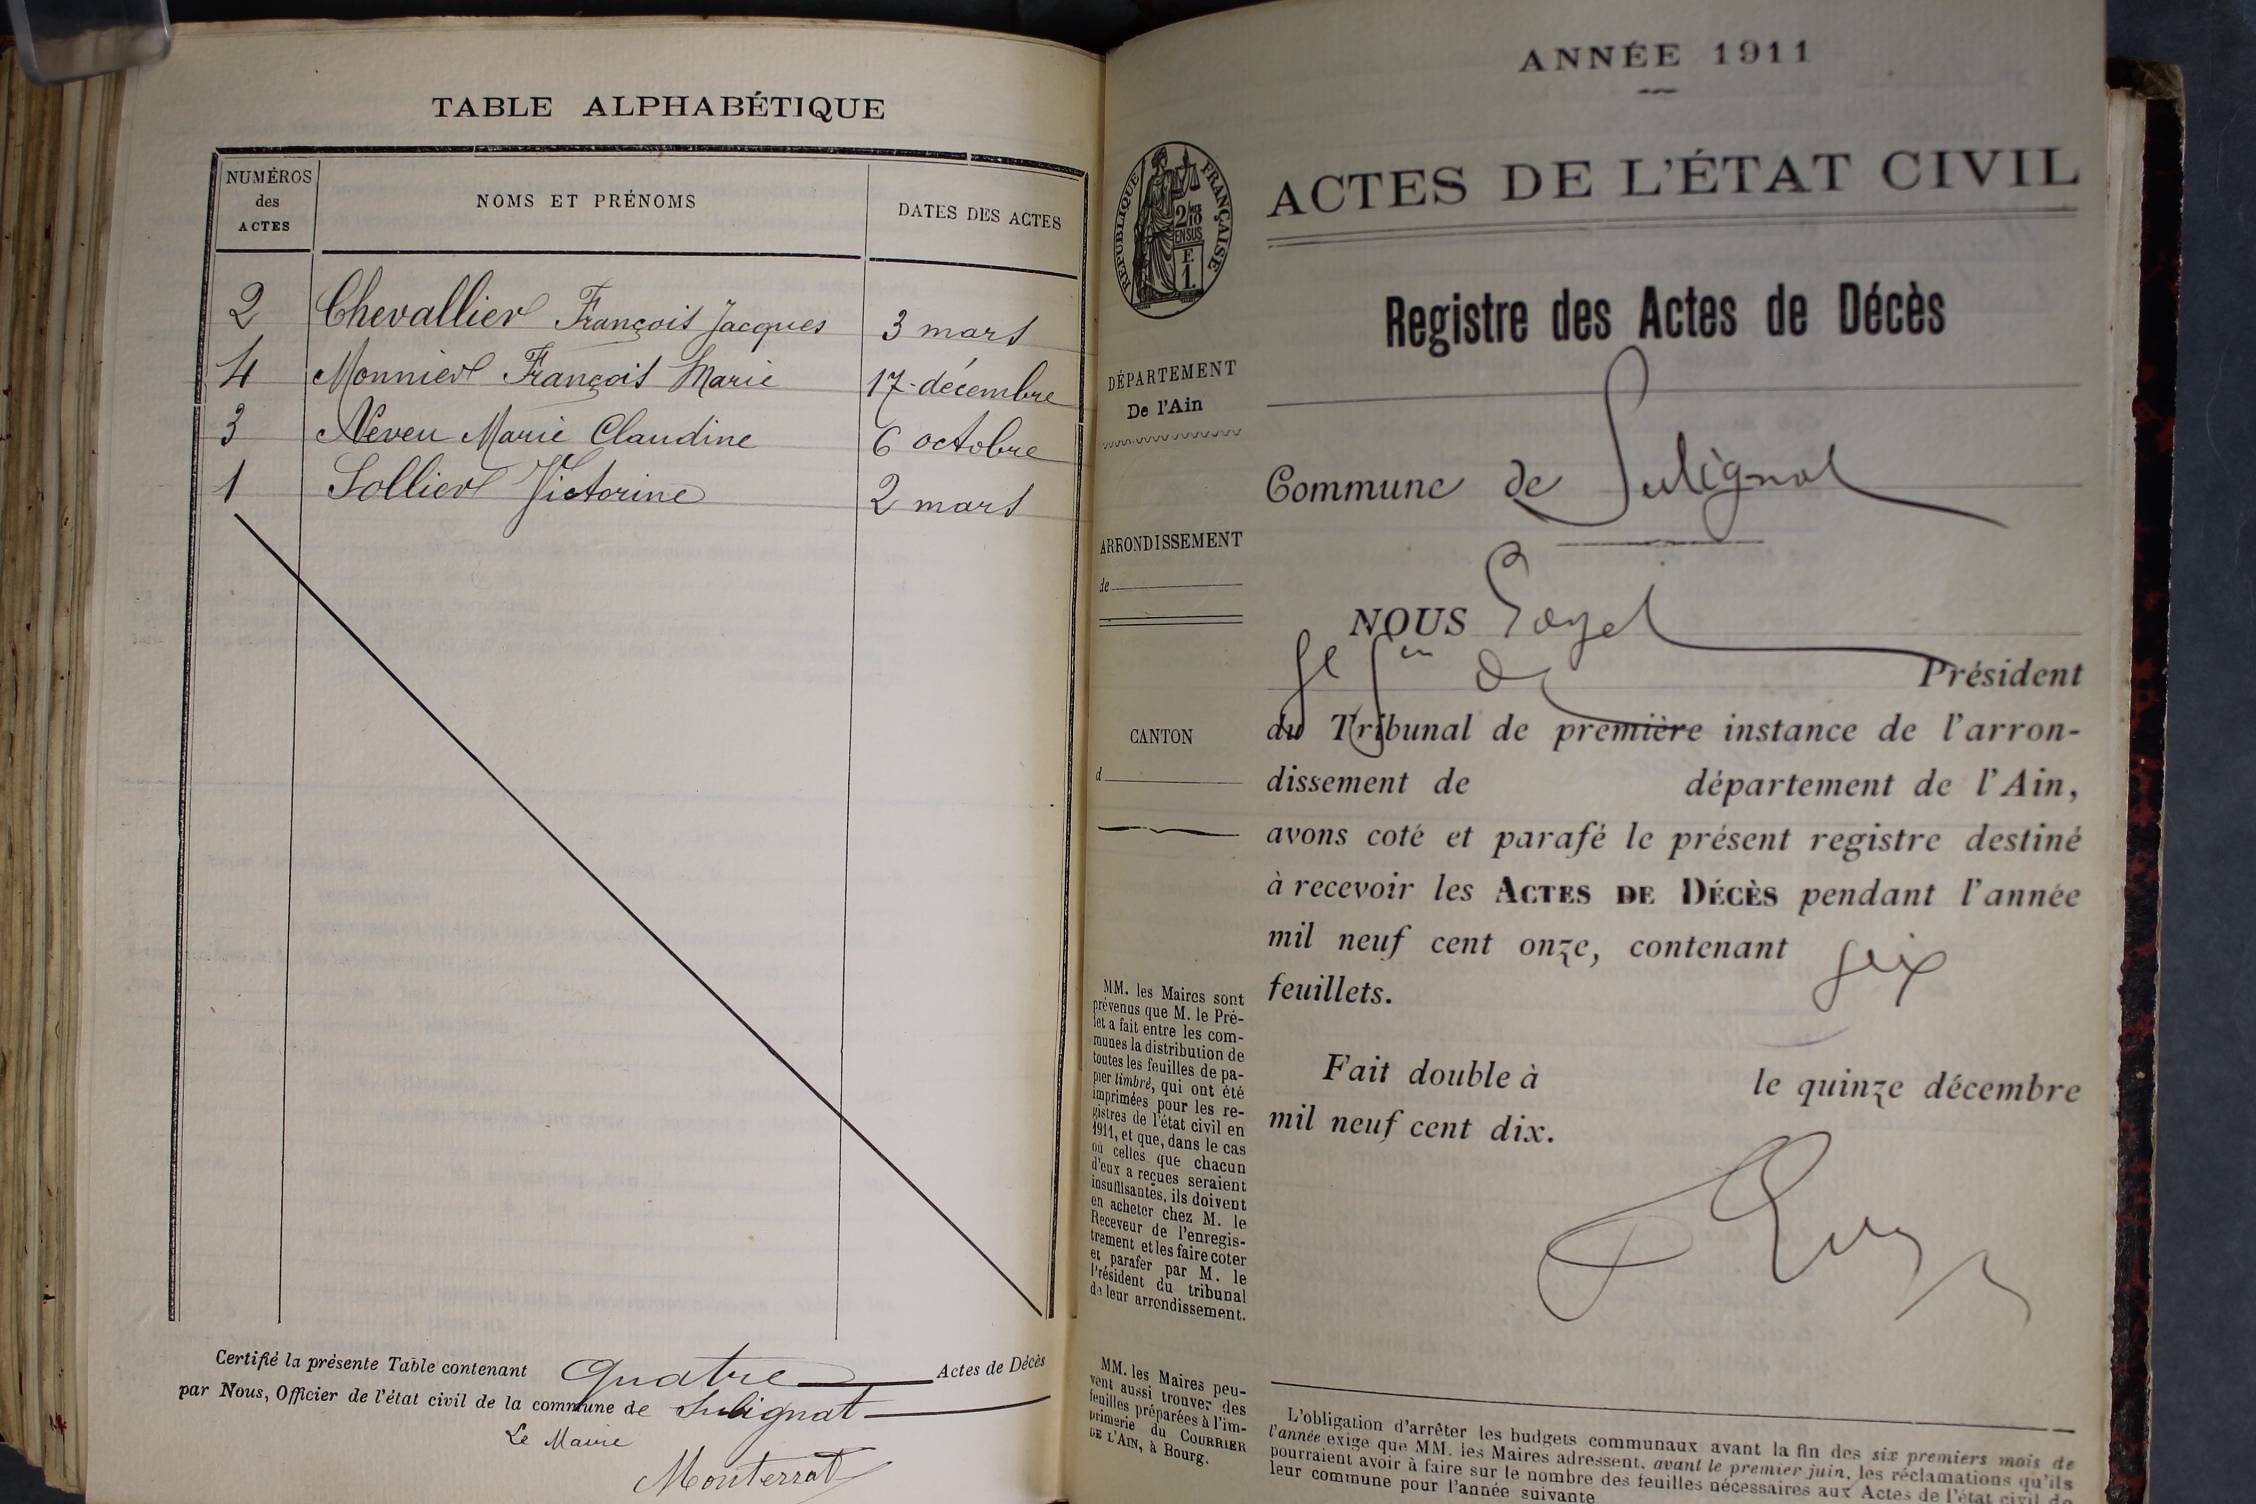 TABLE ALPHABÉTIQUE
NUMÉROS des ACTES
NOMS ET PRÉNOMS
DATES DES ACTES
2 Chevallier François Jacques 3 mars
4 Monnier François Marie 17 décembre
3 Neveu Marie Claudine 6 octobre
1 Sollier Victorine 2 mars
Certifié la présente Table contenant quatre Actes de Décès
par Nous, Officier de l'état civil de la commune de Sulignat
Le Maire
Monterrat
RÉPUBLIQUE FRANÇAISE
ANNÉE 1911
ACTES DE L'ÉTAT CIVIL
Registre des Actes de Décès
DÉPARTEMENT
De l'Ain
Commune de Sulignat
ARRONDISSEMENT
de
NOUS
Président
du Tribunal de première instance de l'arron-
dissement de département de l'Ain,
avons coté et parafé le présent registre destiné
à recevoir les ACTES DE DÉCÈS pendant l'année
mil neuf cent onze, contenant six
feuillets.
Fait double à le quinze décembre
mil neuf cent dix.
CANTON
d
MM. les Maires sont
prévenus que M. le Pré-
fet a fait entre les com-
munes la distribution de
toutes les feuilles de pa-
pier timbré, qui ont été
imprimées pour les re-
gistres de l'état civil en
1911, et que, dans le cas
où celles que chacun
d'eux a reçues seraient
insuffisantes, ils doivent
en acheter chez M. le
Receveur de l'enregis-
trement et les faire coter
et parafer par M. le
Président du tribunal
de leur arrondissement.
MM. les Maires peu-
vent aussi trouver des
feuilles préparées à l'im-
primerie du COURRIER
DE L'AIN, à Bourg.
L'obligation d'arrêter les budgets communaux avant la fin des six premiers mois de
l'année exige que MM. les Maires adressent, avant le premier juin, les réclamations qu'ils
pourraient avoir à faire sur le nombre des feuilles nécessaires aux Actes de l'état civil de
leur commune pour l'année suivante